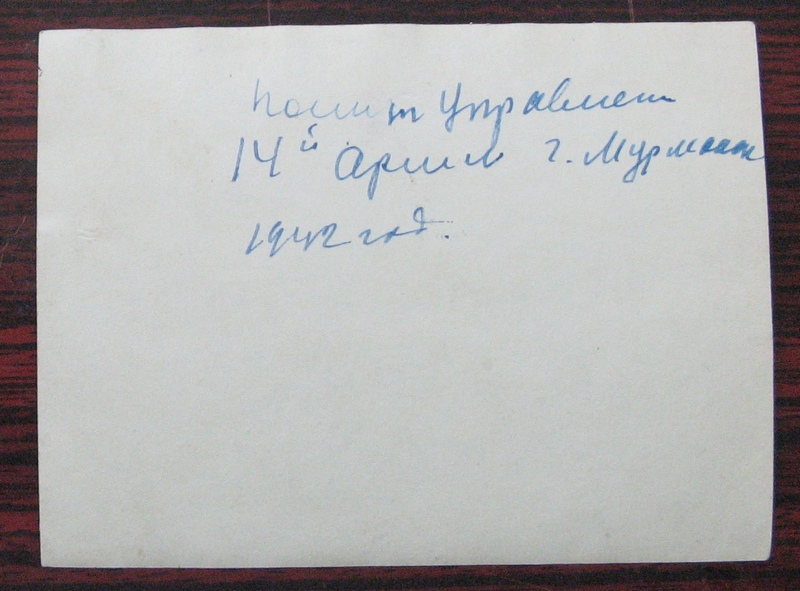 Полит Управлен
14й Армии г. Мурманск
1942 год.